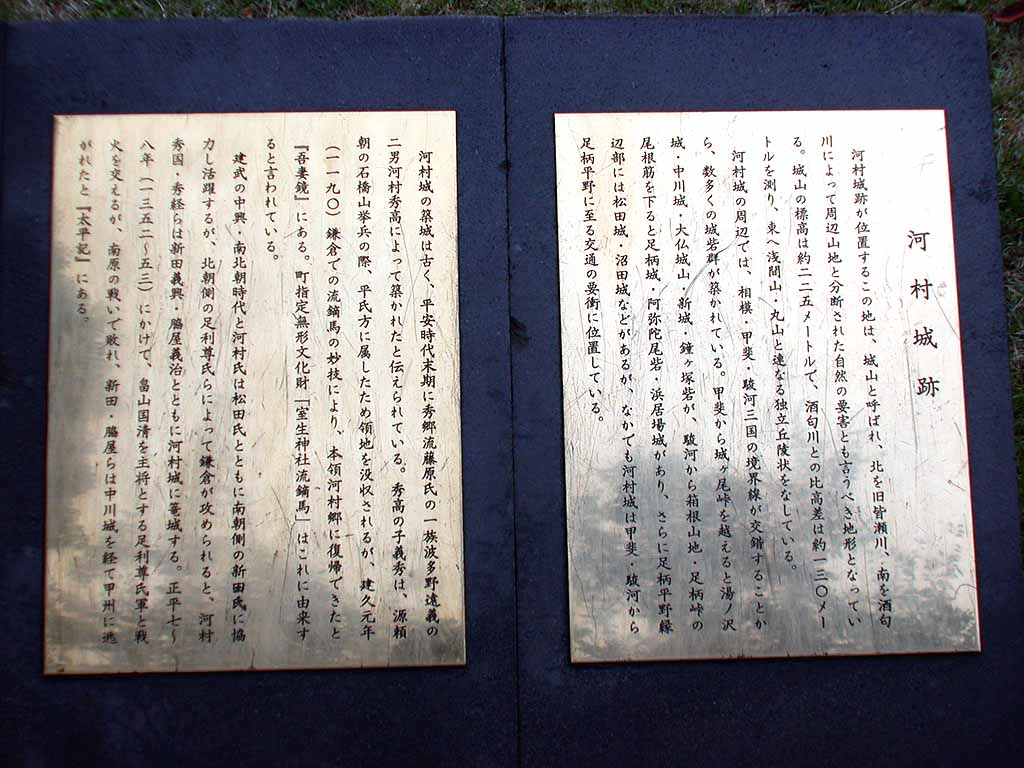 河村城跡
河村城跡が位置するこの地は、城山と呼ばれ、北を旧皆瀬川、南を酒匂
川によって周辺山地と分断された自然の要害とも言うべき地形となってい
る。城山の標高は約二二五メートルで、酒匂川との比高差は約一三〇メー
トルを測り、東へ浅間山・丸山と連なる独立丘陵状をなしている。
河村城の周辺では、相模・甲斐・駿河三国の境界線が交錯することか
ら、数多くの城砦群が築かれている。甲斐から城ヶ尾峠を越えると湯ノ沢
城・中川城・大仏城山・新城・鐘ヶ塚砦が、駿河から箱根山地・足柄峠の
尾根筋を下ると足柄城・阿弥陀尾砦・浜居場城があり、さらに足柄平野縁
辺部には松田城・沼田城などがあるが、なかでも河村城は甲斐・駿河から
足柄平野に至る交通の要衝に位置している。
河村城の築城は古く、平安時代末期に秀郷流藤原氏の一族波多野遠義の
二男河村秀高によって築かれたと伝えられている。秀高の子義秀は、源頼
朝の石橋山挙兵の際、平氏方に属したため領地を没収されるが、建久元年
（一一九〇）鎌倉での流鏑馬の妙技により、本領河村郷に復帰できたと
『吾妻鏡』にある。町指定無形文化財「室生神社流鏑馬」はこれに由来す
ると言われている。
建武の中興・南北朝時代と河村氏は松田氏とともに南朝側の新田氏に協
力し活躍するが、北朝側の足利尊氏らによって鎌倉が攻められると、河村
秀国・秀経らは新田義興・脇屋義治とともに河村城に篭城する。正平七～
八年（一三五二～五三）にかけて、畠山国清を主将とする足利尊氏軍と戦
火を交えるが、南原の戦いで敗れ、新田・脇屋らは中川城を経て甲州に逃
がれたと『太平記』にある。